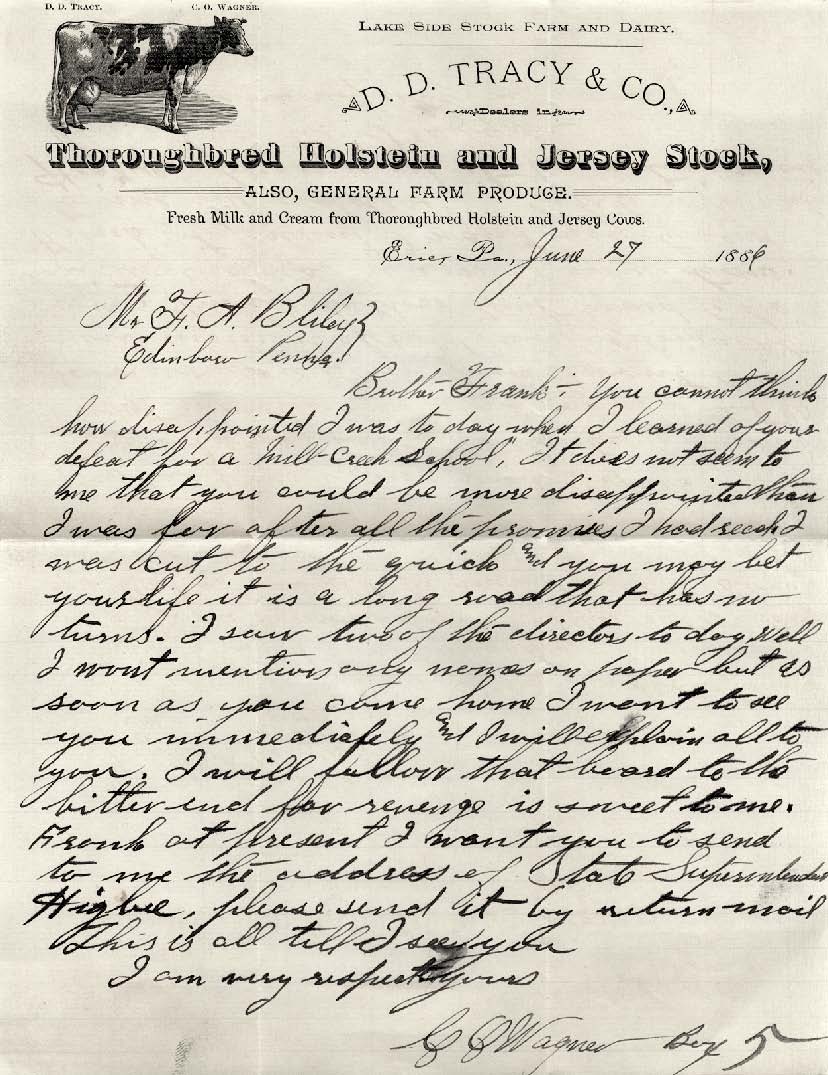 D. D. TRACY. C. O. WAGNER.
LAKE SIDE STOCK FARM AND DAIRY.
D. D. TRACY & CO.,
Dealers in
Thoroughbred Holstein and Jersey Stock,
ALSO, GENERAL FARM PRODUCE.
Fresh Milk and Cream from Thoroughbred Holstein and Jersey Cows.
Erie, Pa., June 27 1886
Mr F. A. Bliley
Edinboro Penna.
Brother Frank:- You cannot think
how disappointed I was to day when I learned of your
defeat for a Mill Creek School, It does not seem to
me that you could be more disappointed than
I was for after all the promises I had I
was cut to the quick and you may bet
your life it is a long road that has no
turns. I saw two of the directors to day well
I wont mention any names on paper but as
soon as you come home I want to see
you immediately and I will explain all to
you. I will follow that board to the
bitter end for revenge is sweet to me.
Frank at present I want you to send
to me the address of State Superintendent
Higbee, please send it by return mail
This is all till I see you
I am very respect yours
C O Wagner Box 5